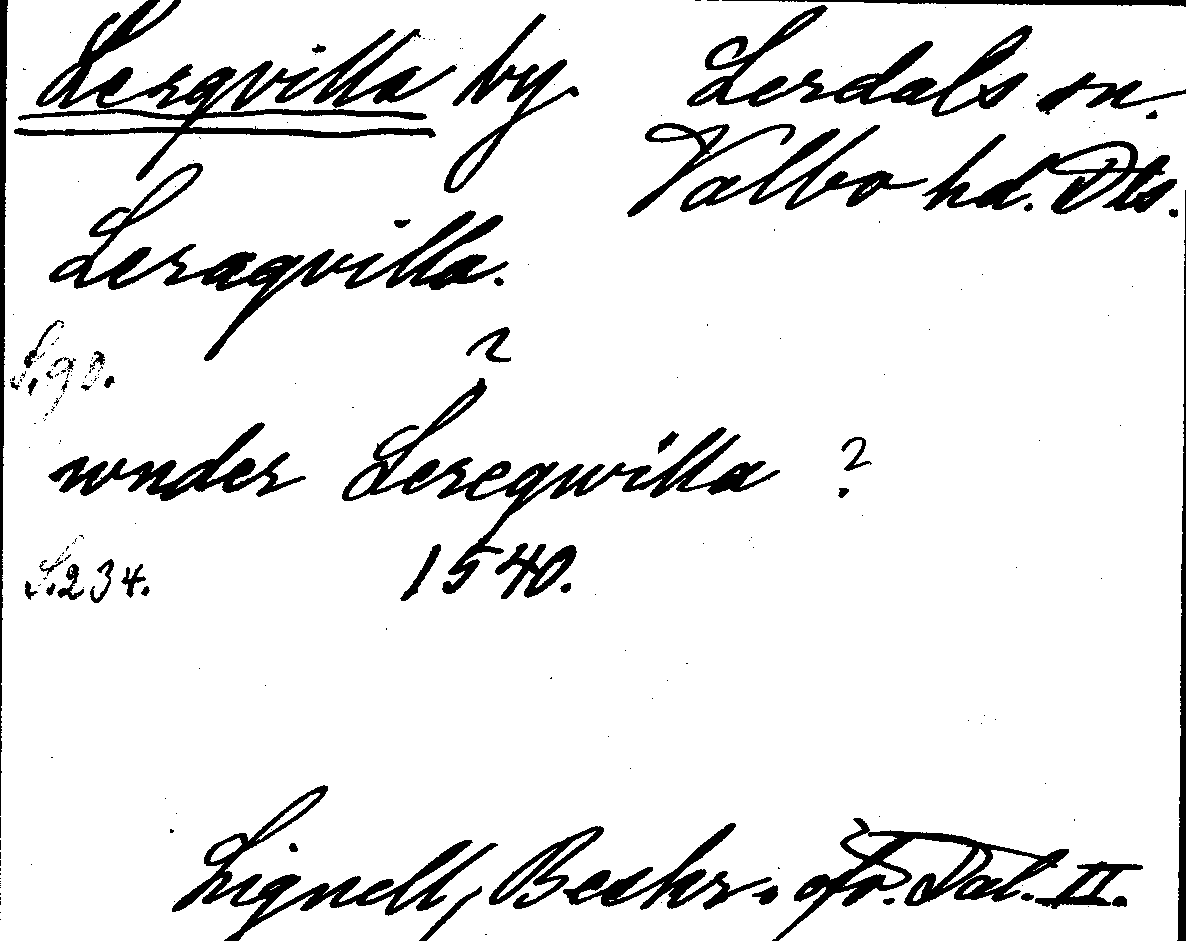 Lerqvilla by. Lerdals sn.
Valbo hd. Dls.
Leraqvilla.
S. 90.
?
wnder Lereqwilla ?
S. 234. 1540.
Lignell, Beskr. öfv. Dal. II.